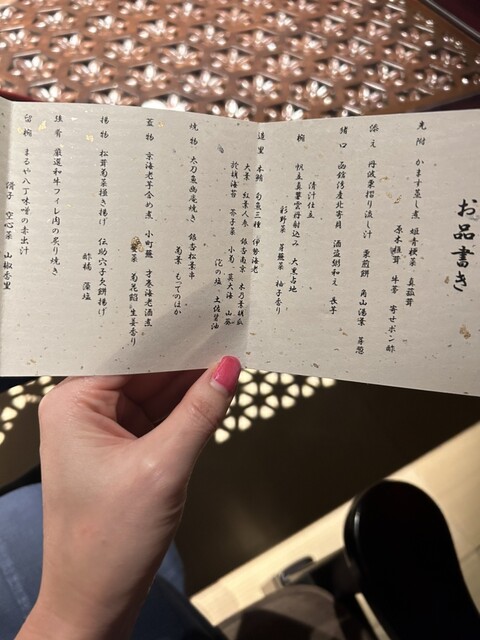 お品書き
先附 かます蒸し煮 畑青梗菜 真菰茸
原木椎茸 牛蒡 寄せポン酢
添え 丹波栗摺り流し汁 栗煎餅 角山湯葉 芽葱
猪口 函館湾産北寄貝 酒盗餡和え 長芋
清汁仕立
椀 帆立真薯雲丹射込み 大黒占地
彩野菜 芽蕪菜 柚子香り
造里 本鮪 旬魚三種 伊勢海老
大葉 紅葉人参 銀杏南京 木乃葉胡瓜
於胡海苔 芥子菜 小菊 莫大海 山葵
泡の塩 土佐醤油
焼物 太刀魚幽庵焼き 銀杏松葉串
菊葉 もってのほか
蓋物 京海老芋含め煮 小町麩 才巻海老酒煮
菜 菊花餡 生姜香り
揚物 松茸菊菜掻き揚げ 伝助穴子久餅揚げ
酢橘 藻塩
強肴 厳選和牛フィレ肉の炙り焼き
留椀 まるや八丁味噌の赤出汁
滑子 空心菜 山椒香里